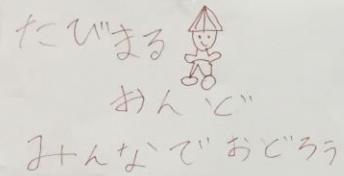 たびまる
おんど
みんなでおどろう